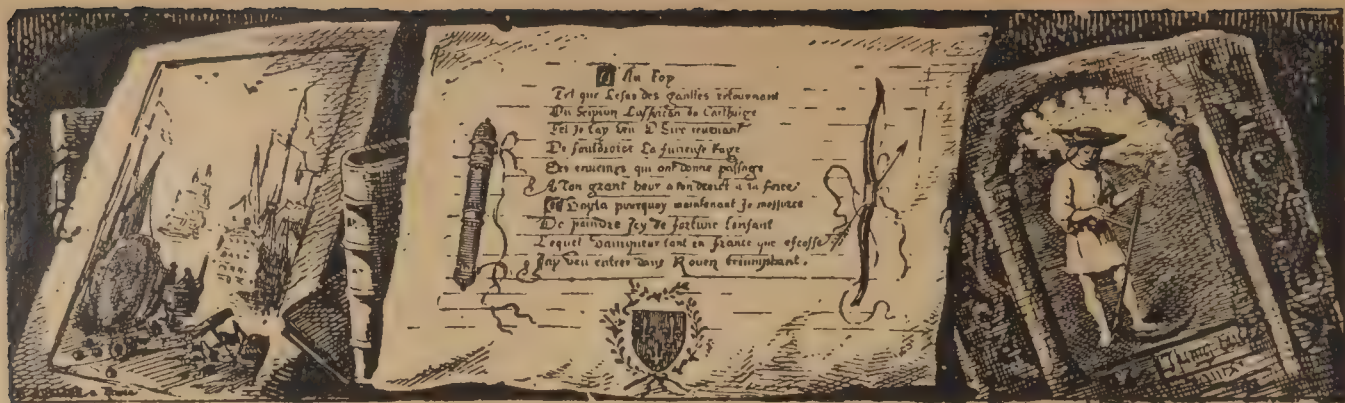 Au Roy
Tel que Cesar des gaulles retournant
Ou Scipion Laffricain de Carthaige
Tel Je tay veu O Sire revenant
De fouldroier La furieuse Rage
Des ennemys qui ont donne passage
A Ton grant heur a ton droict a ta force
Voyla pourquoy maintenant Je mefforce
De paindre Jcy de fortune lenfant
Lequel Vainqueur tant en france que escosse
Jay veu entrer dans Rouen triumphant.